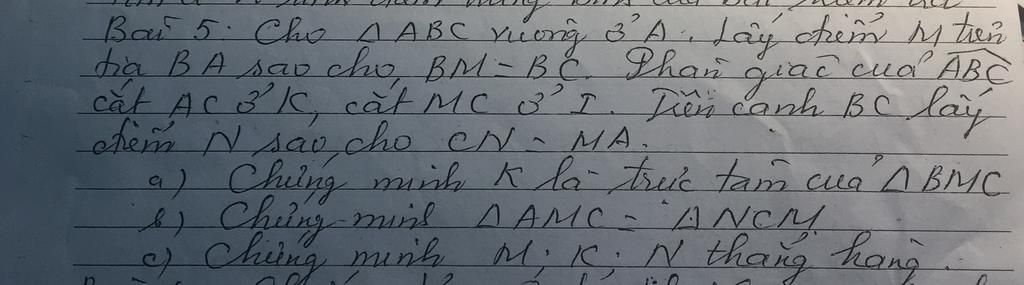 Bài 5: Cho Δ ABC vuông ở A. Lấy điểm M trên
tia BA sao cho BM = BC. Phân giác của ABC
cắt AC ở K, cắt MC ở I. Trên cạnh BC lấy
điểm N sao cho CN = MA.
a) Chứng minh K là trực tâm của Δ BMC
b) Chứng minh Δ AMC = Δ NCM
c) Chứng minh M; K; N thẳng hàng.